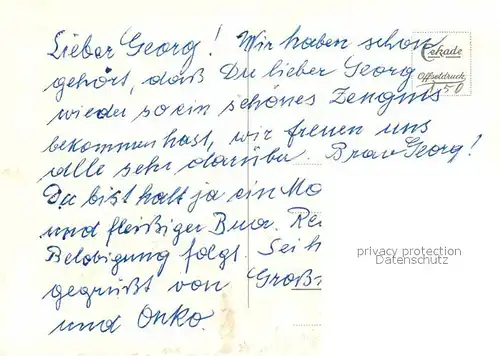 Lieber Georg! Wir haben schon
gehört, daß Du lieber Georg
wieder so ein schönes Zeugnis
bekommen hast, wir freuen uns
alle sehr darüber. Brav Georg!
Du bist halt ja ein
und fleißiger Bua.
Belobigung folgt. Sei
gegrüßt von
und Onko.
Cekade
Offsetdruck
50
privacy protection
Datenschutz